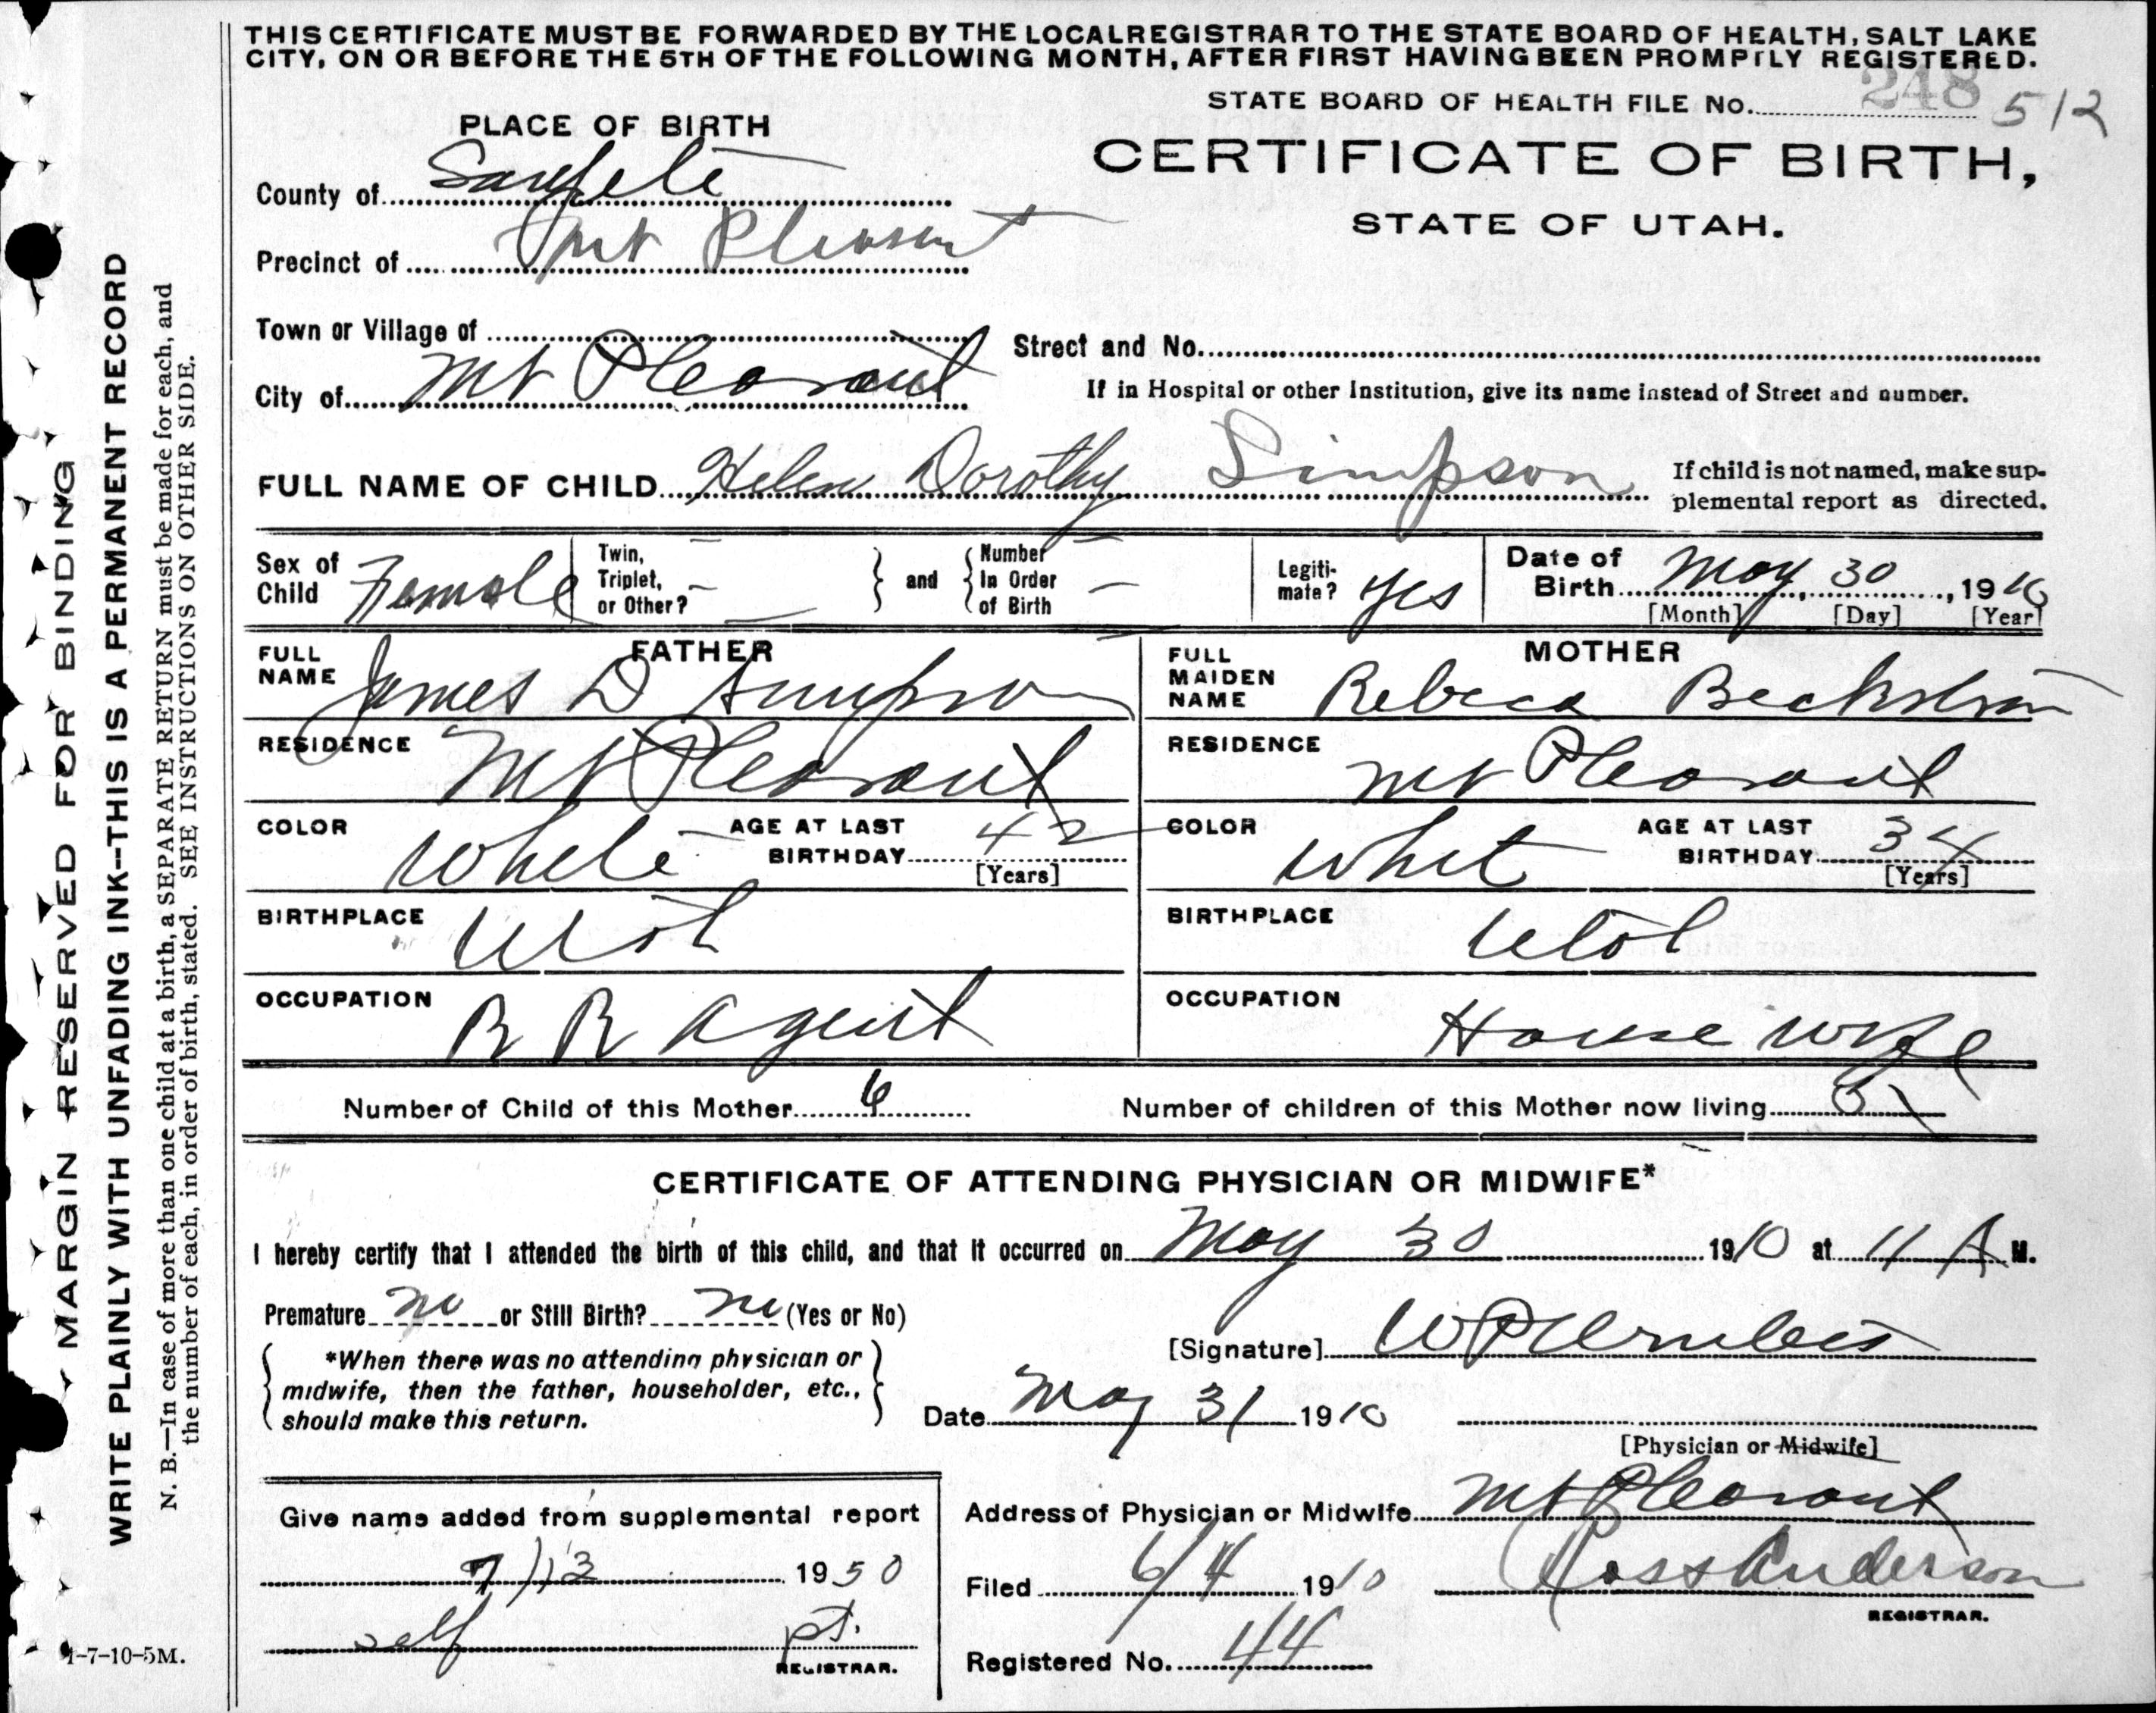 THIS CERTIFICATE MUST BE FORWARDED BY THE LOCAL REGISTRAR TO THE STATE BOARD OF HEALTH, SALT LAKE
CITY, ON OR BEFORE THE 5TH OF THE FOLLOWING MONTH, AFTER FIRST HAVING BEEN PROMPTLY REGISTERED.
STATE BOARD OF HEALTH FILE No. 248 512
PLACE OF BIRTH
CERTIFICATE OF BIRTH,
STATE OF UTAH.
County of Sanpete
Precinct of Mt Pleasant
Town or Village of
Street and No.
City of Mt Pleasant
If in Hospital or other Institution, give its name instead of Street and number.
FULL NAME OF CHILD Helen Dorothy Simpson
If child is not named, make sup-
plemental report as directed.
Sex of Child Female
Twin, Triplet, or Other? —
and
Number In Order of Birth —
Legiti-mate? Yes
Date of Birth May 30, 1910
[Month] [Day] [Year]
FATHER
FULL NAME James D Simpson
MOTHER
FULL MAIDEN NAME Rebeca Beckstrom
RESIDENCE Mt Pleasant
RESIDENCE Mt Pleasant
COLOR White
AGE AT LAST BIRTHDAY 42 [Years]
COLOR Whit
AGE AT LAST BIRTHDAY 34 [Years]
BIRTHPLACE Utah
BIRTHPLACE Utah
OCCUPATION R R Agent
OCCUPATION House wife
Number of Child of this Mother 6
Number of children of this Mother now living
CERTIFICATE OF ATTENDING PHYSICIAN OR MIDWIFE*
I hereby certify that I attended the birth of this child, and that it occurred on May 30 1910 at 11 A M.
Premature no or Still Birth? no (Yes or No)
*When there was no attending physician or
midwife, then the father, householder, etc.,
should make this return.
[Signature] W P
Date May 31 1910
[Physician or Midwife]
Give name added from supplemental report
7/13 1950
self pt.
REGISTRAR.
Address of Physician or Midwife Mt Pleasant
Filed 6/4 1910 Ross Anderson
REGISTRAR.
Registered No. 44
MARGIN RESERVED FOR BINDING
WRITE PLAINLY WITH UNFADING INK--THIS IS A PERMANENT RECORD
N. B.—In case of more than one child at a birth, a SEPARATE RETURN must be made for each, and
the number of each, in order of birth, stated. SEE INSTRUCTIONS ON OTHER SIDE.
1-7-10-5M.